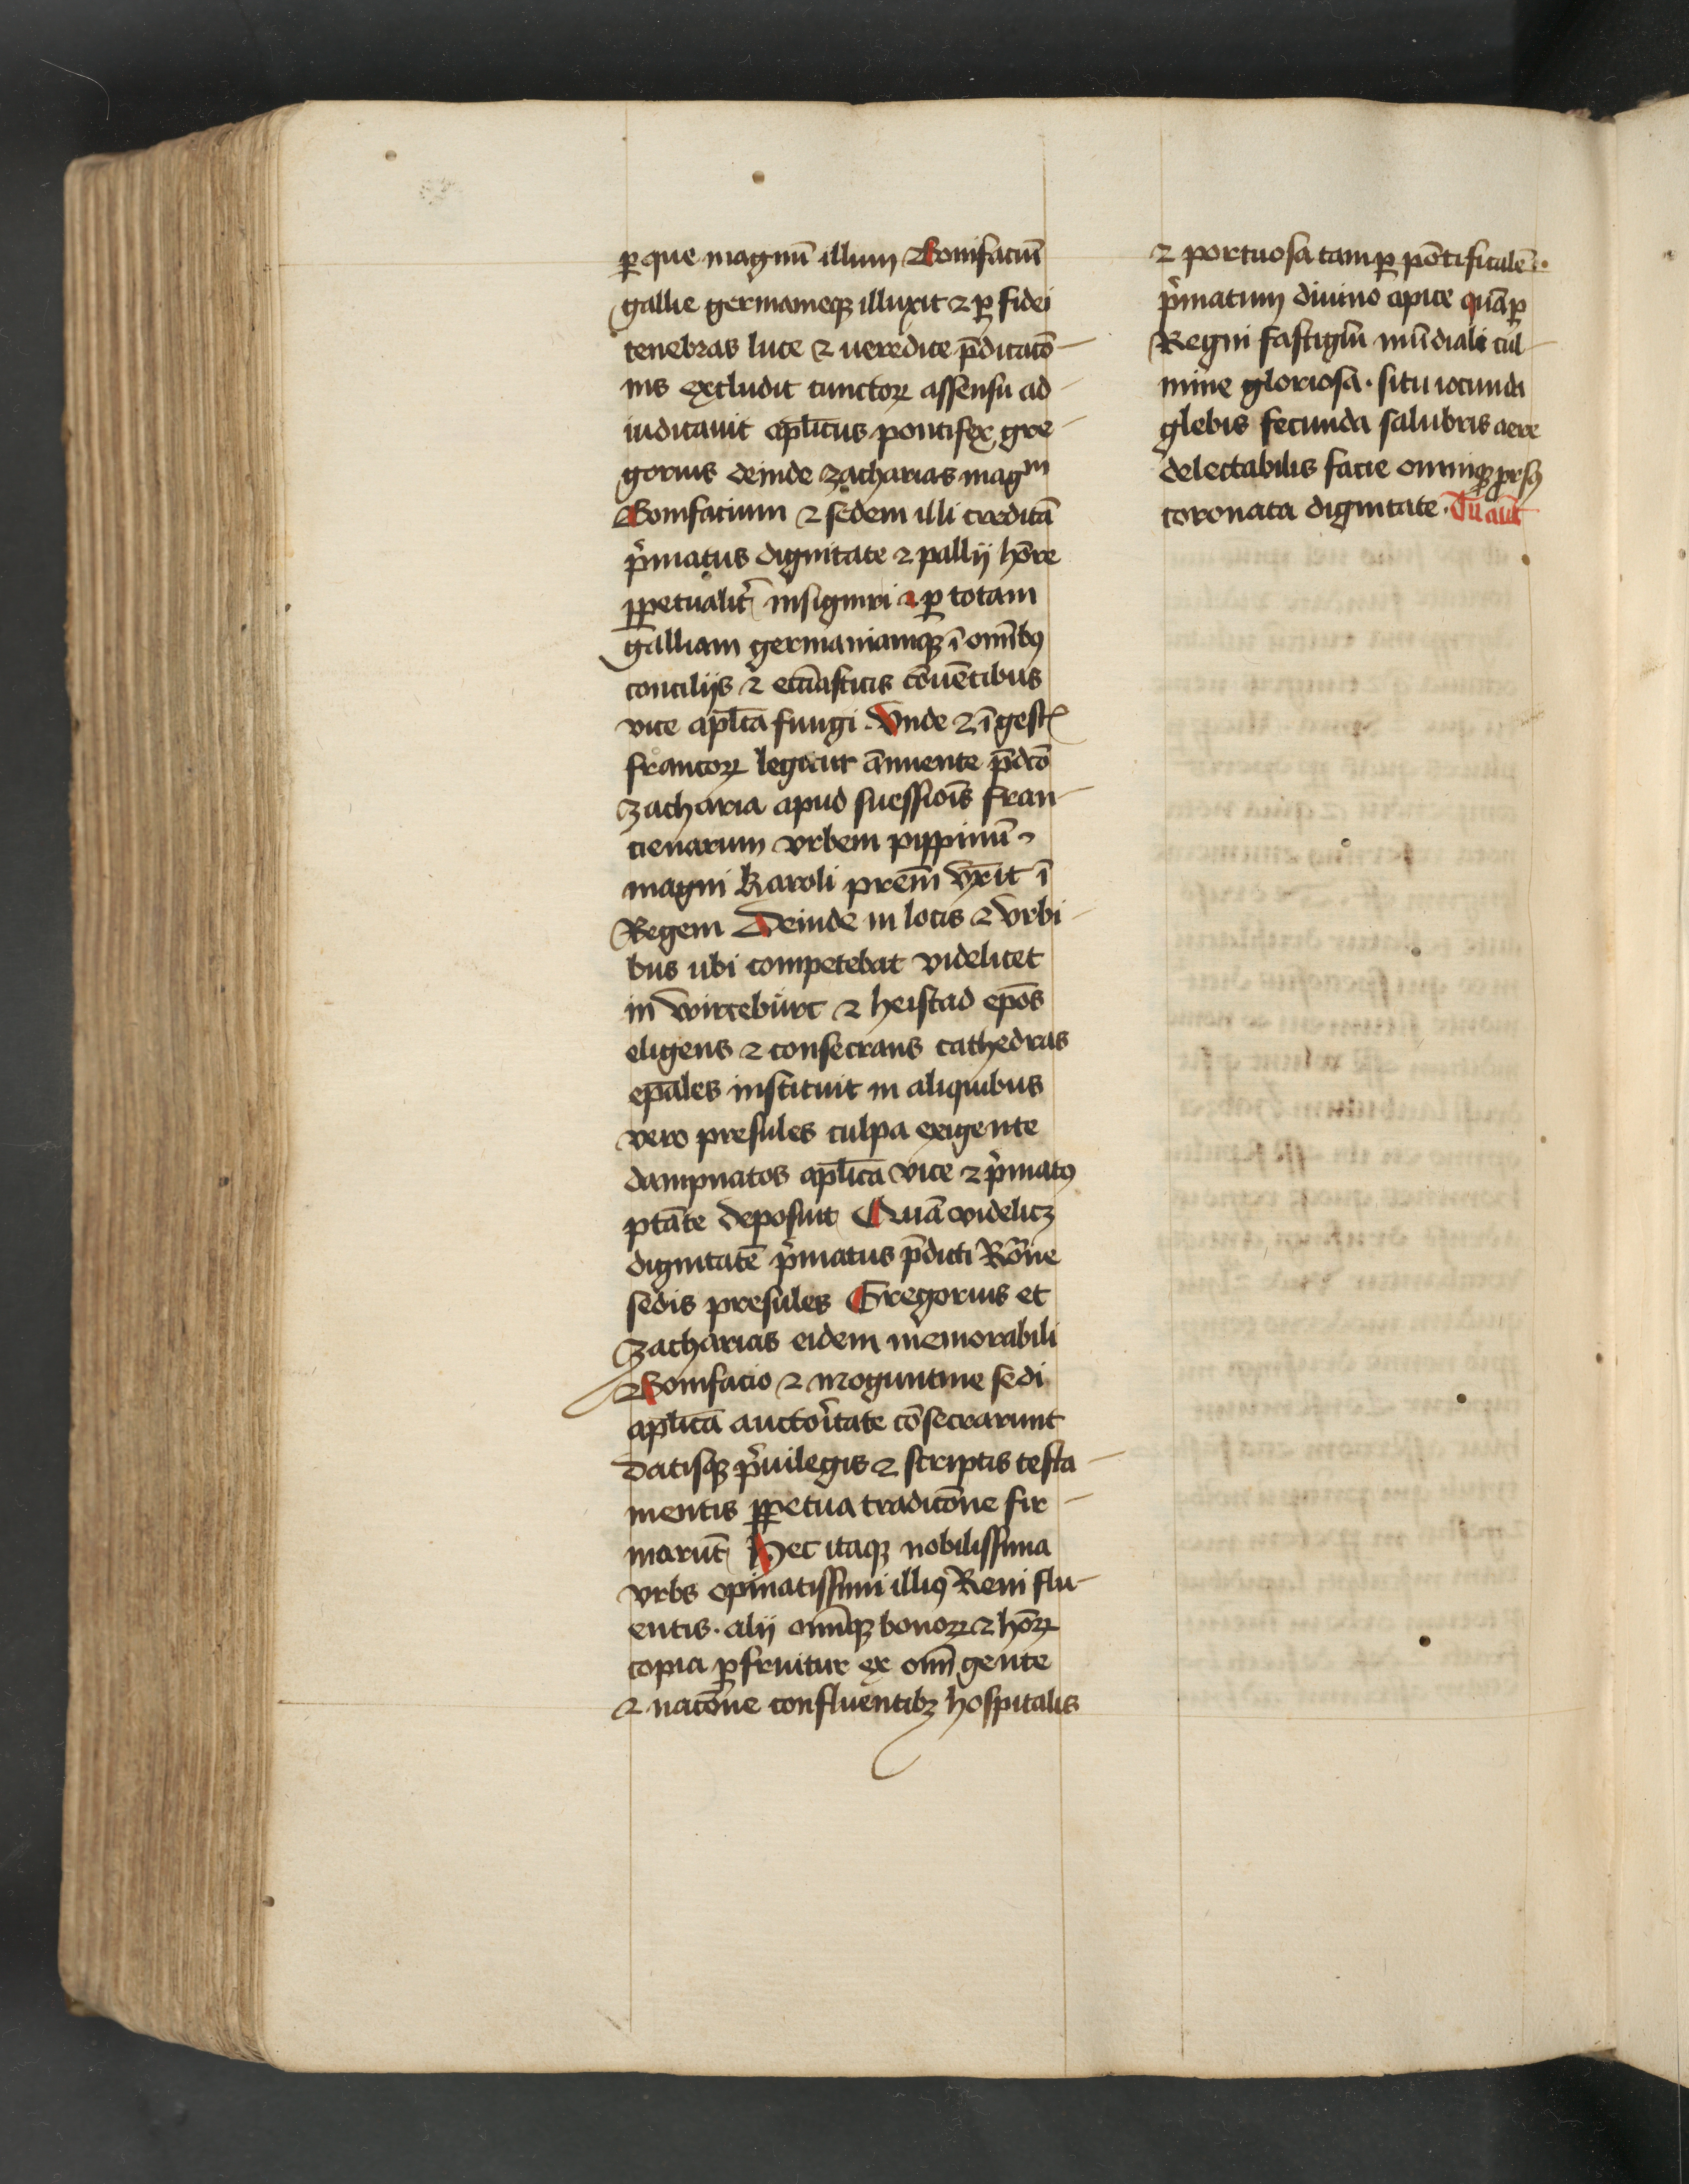 ꝑ que magnū illum Bonifaciū
gallie germanieqꝫ illuxit ⁊ ꝑ fidei
tenebras luce ⁊ ueredice p̄dicacō
nis excludit cunctoꝝ assensu ad
iudicauit aplīcus pontifex gre
gorius deinde zacharias magᵐ
Bonifacium ⁊ sedem illi creditā
p̄matus dignitate ⁊ pallij hōre
ꝑpetualit̄ insigniri ⁊ ꝑ totam
galliam germaniamqꝫ ī om̄ibꝰ
concilijs ⁊ eccl̄iasticis cōuētibus
vice aplīca fungi . Vnde ⁊ ī gestꝭ
francoꝝ legitur ānuente p̄dc̄o
zacharia apud suessiōis fran
cienarum vrbem pippinū
magni karoli prēm vn̄xit ī
Regem Deinde in locis ⁊ vrbi
bus ubi competebat videlicet
in wirceburc ⁊ heistad ep̄os
eligens ⁊ consecrans cathedras
ep̄ales instituit in aliquibus
vero presules culpa exigente
dampnatos aplīca vice ⁊ p̄matꝰ
ptāte deposuit Quā videlicꝫ
dignitatē p̄matus p̄dicti Rōne
sedis presules Gregorius et
zacharias eidem memorabili
Bonifacio ⁊ moguntine sedi
aplīca auctoītate cōsecrarunt
datisqꝫ p̄uilegis ⁊ scriptis testa
mentis ꝑpetua tradicōne fir
marūt Hec itaqꝫ nobilissima
vrbs opinatissimi illiꝰ Reni flu
entis . alij om̄iqꝫ bonoꝝ ⁊ hōꝝ
copia ꝑfruitur ex om̄i gente
⁊ nacōne confluentibꝫ hospitalis
⁊ portuosa tam ꝑ pōtificalē .
p̄matum diuino apice quā ꝑ
Regni fastigiū mūdiali cul
mine gloriosa . situ iocunda
glebis fecunda salubris aere
delectabilis facie omniqꝫ prorsꝰ
coronata dignitate . Tu aūt